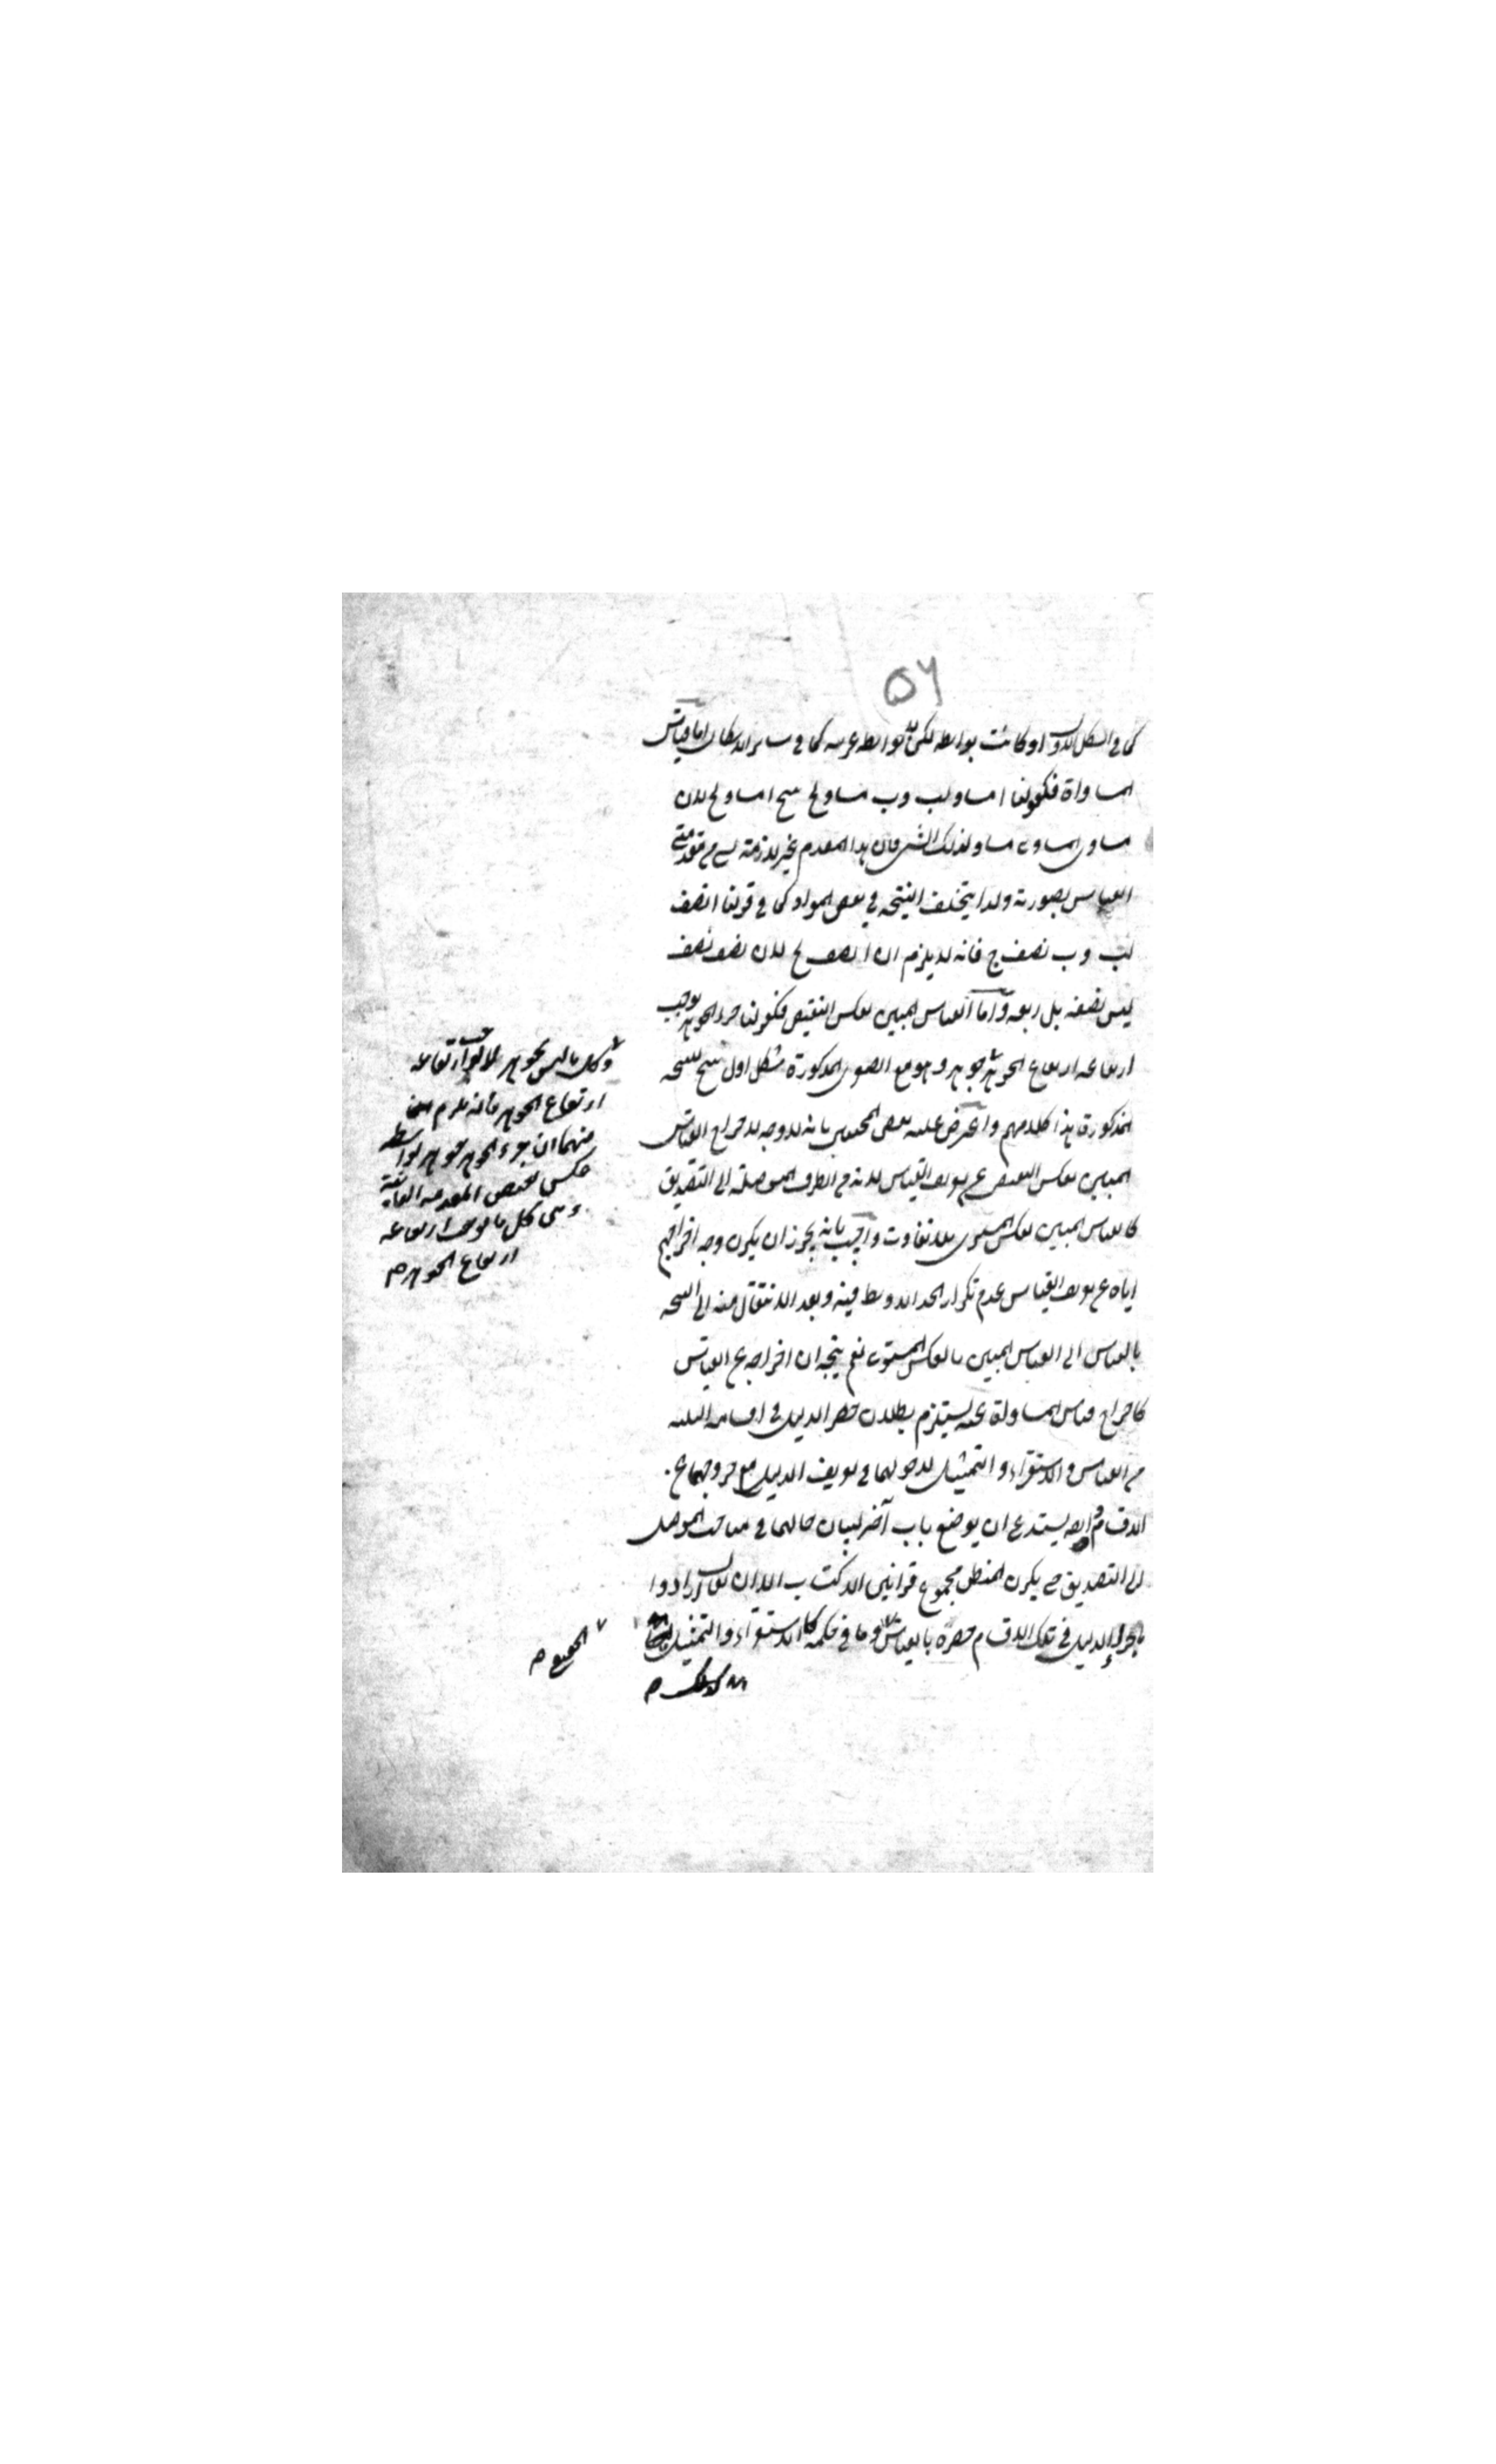 ٥٦
كما في الشكل الاول او كانت بواسطة لكن لا بواسطة غريبة كما في سائر الاشكال اما قياس
المساواة فكقولنا ا مساو لب وب مساو لج ينتج ا مساو لج لان
مساوي المساوي مساو لذلك الشئ فان هذا المقدم غير لازمة لشئ من مقدمتي
القياس بصورته ولذا يتخلف النتيجة في بعض المواد كما في قولنا ا نصف
لب وب نصف ج فانه لا يلزم ان ا نصف ج لان نصف نصف
ليس نصفه بل ربعه واما القياس المبين بعكس النقيض فكقولنا جزء الجوهر يوجب
ارتفاعه ارتفاع الجوهر جوهر وهو مع الصغرى المذكورة شكل اول ينتج للنتيجة
المذكورة هذا كلامهم واعترض عليه بعض المحققين بانه لا وجه لاخراج القياس
المبين بعكس النقيض عن تعريف القياس لانه من الطرق الموصلة الى التصديق
كالقياس المبين بعكس المستوي بلا تفاوت واجيب بانه يجوز ان يكون وجه اخراجهم
اياه عن تعريف القياس عدم تكرار الحد الاوسط فيه وبعد الانتقال منه الى النتيجة
بالقياس الى القياس المبين بالعكس المستوي نعم يتجه ان اخراجه عن القياس
كاخراج قياس المساواة عنه يستلزم بطلان حصر الدليل في اقسامه الثلثة
من القياس والاستقراء والتمثيل لدخولهما في تعريف الدليل مع خروجهما عن
الاقسام وايضا يستدعي ان يوضع باب آخر لبيان حالهما في مباحث الموصل
الى التصديق حتى يكون المنطق مجموع قوانين الاكتساب الا ان يقال ارادوا
بانحصار الدليل في تلك الاقسام حصره بالقياس وما في حكمه كالاستقراء والتمثيل
وكل ما ليس بجوهر لا يوجب ارتفاعه
ارتفاع الجوهر فانه يلزم
منهما ان جزء الجوهر جوهر بواسطة
عكس نقيض المقدمة الثانية
وهي كل ما يوجب ارتفاعه
ارتفاع الجوهر صح
صح